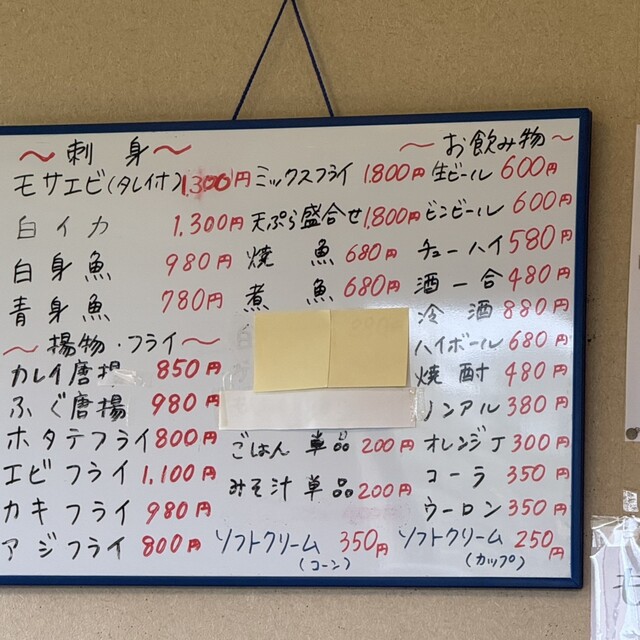 〜刺身〜
モサエビ(タレイオ)1,300円
白イカ 1.300円
白身魚 980円
青身魚 780円
〜揚物・フライ〜
カレイ唐揚 850円
ふぐ唐揚 980円
ホタテフライ 800円
エビフライ 1.100円
カキフライ 980円
アジフライ 800円
ミックスフライ 1.800円
天ぷら盛合せ 1,800円
焼魚 680円
煮魚 680円
ごはん 単品 200円
みそ汁 単品 200円
ソフトクリーム 350円
(コーン)
〜お飲み物〜
生ビール 600円
ビンビール 600円
チューハイ 580円
酒一合 480円
冷酒 880円
ハイボール 680円
焼酎 480円
ノンアル 380円
オレンジJ 300円
コーラ 350円
ウーロン 350円
ソフトクリーム 250円
(カップ)